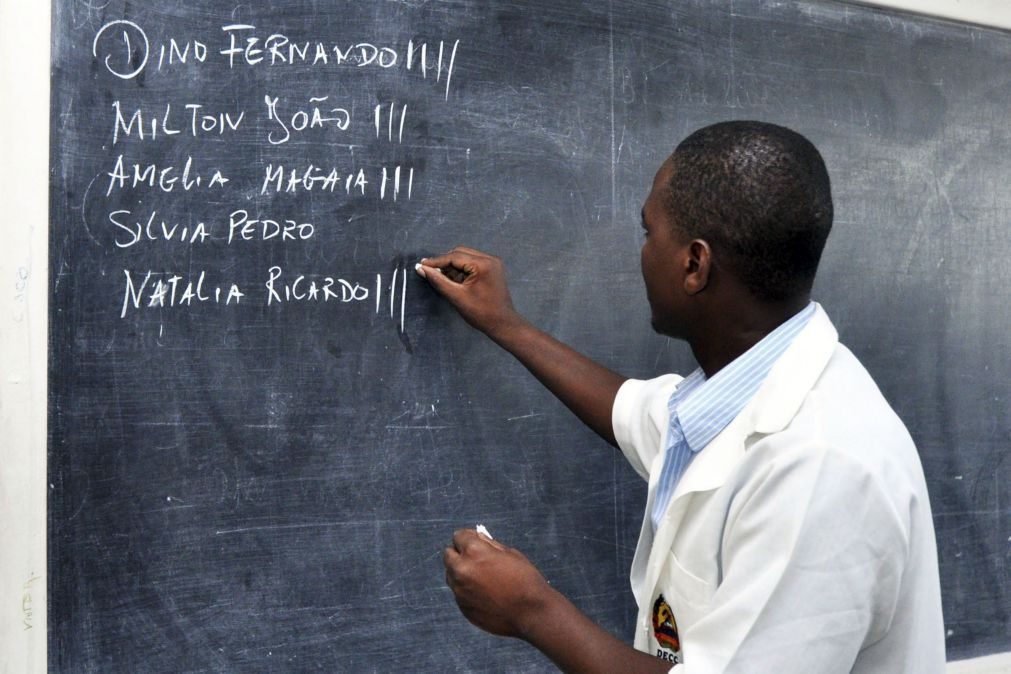 DINO FERNANDO |||||
MILTON JOÃO |||
AMELIA MAGAIA |||
SILVIA PEDRO
NATALIA RICARDO |||